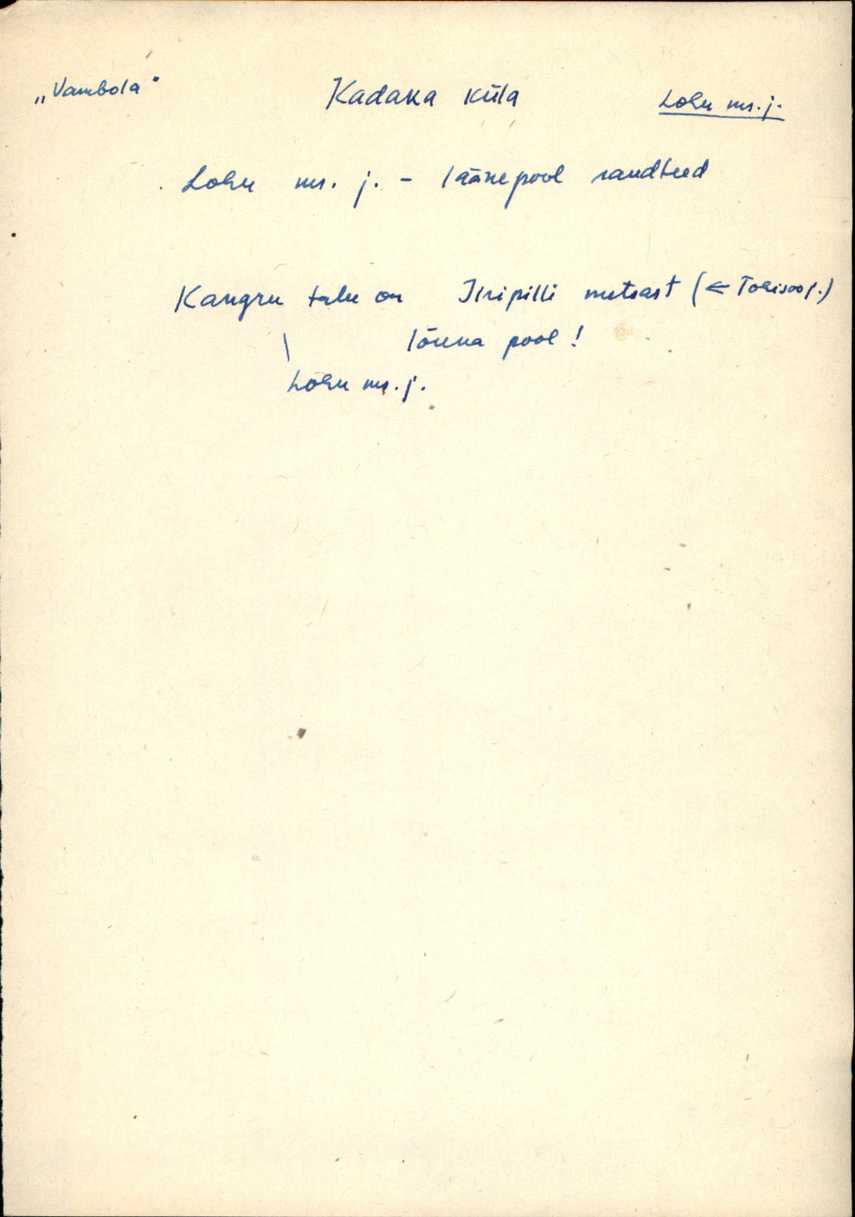 „Vambola" Kadaka küla Lohu ms. j.
Lohu ms. j. - läänepool raudteed
Kangru talu on Iiripilli metsast (← Tohisoo j.)
lõuna pool!
Lohu ms. j.